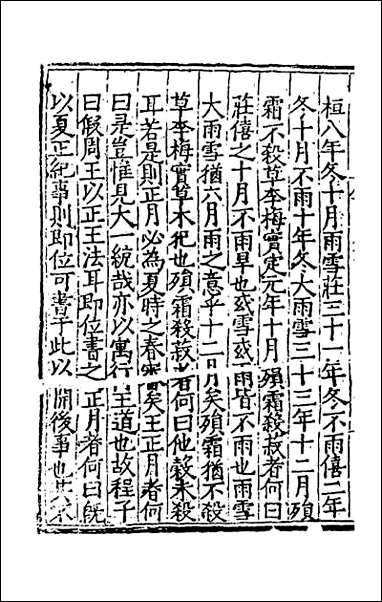 桓八年冬十月雨雪莊三十一年冬不雨僖二年
冬十月不雨十年冬大雨雪三十三年十二月隕
霜不殺草李梅實定元年十月隕霜殺菽者何曰
莊僖之十月不雨旱也或雪或雨皆不雨也雨雪
大雨雪猶六月雨之意乎十二月矣隕霜猶不殺
草李梅實草木犯也殞霜殺菽者何曰他穀未殺
耳若是則正月必為夏時之春矣王正月者何
曰是豈惟見大一統哉亦以寓行王道也故程子
曰假周王以正王法耳即位書之正月者何曰既
以夏正紀事則即位可書乎此以開後事也其不